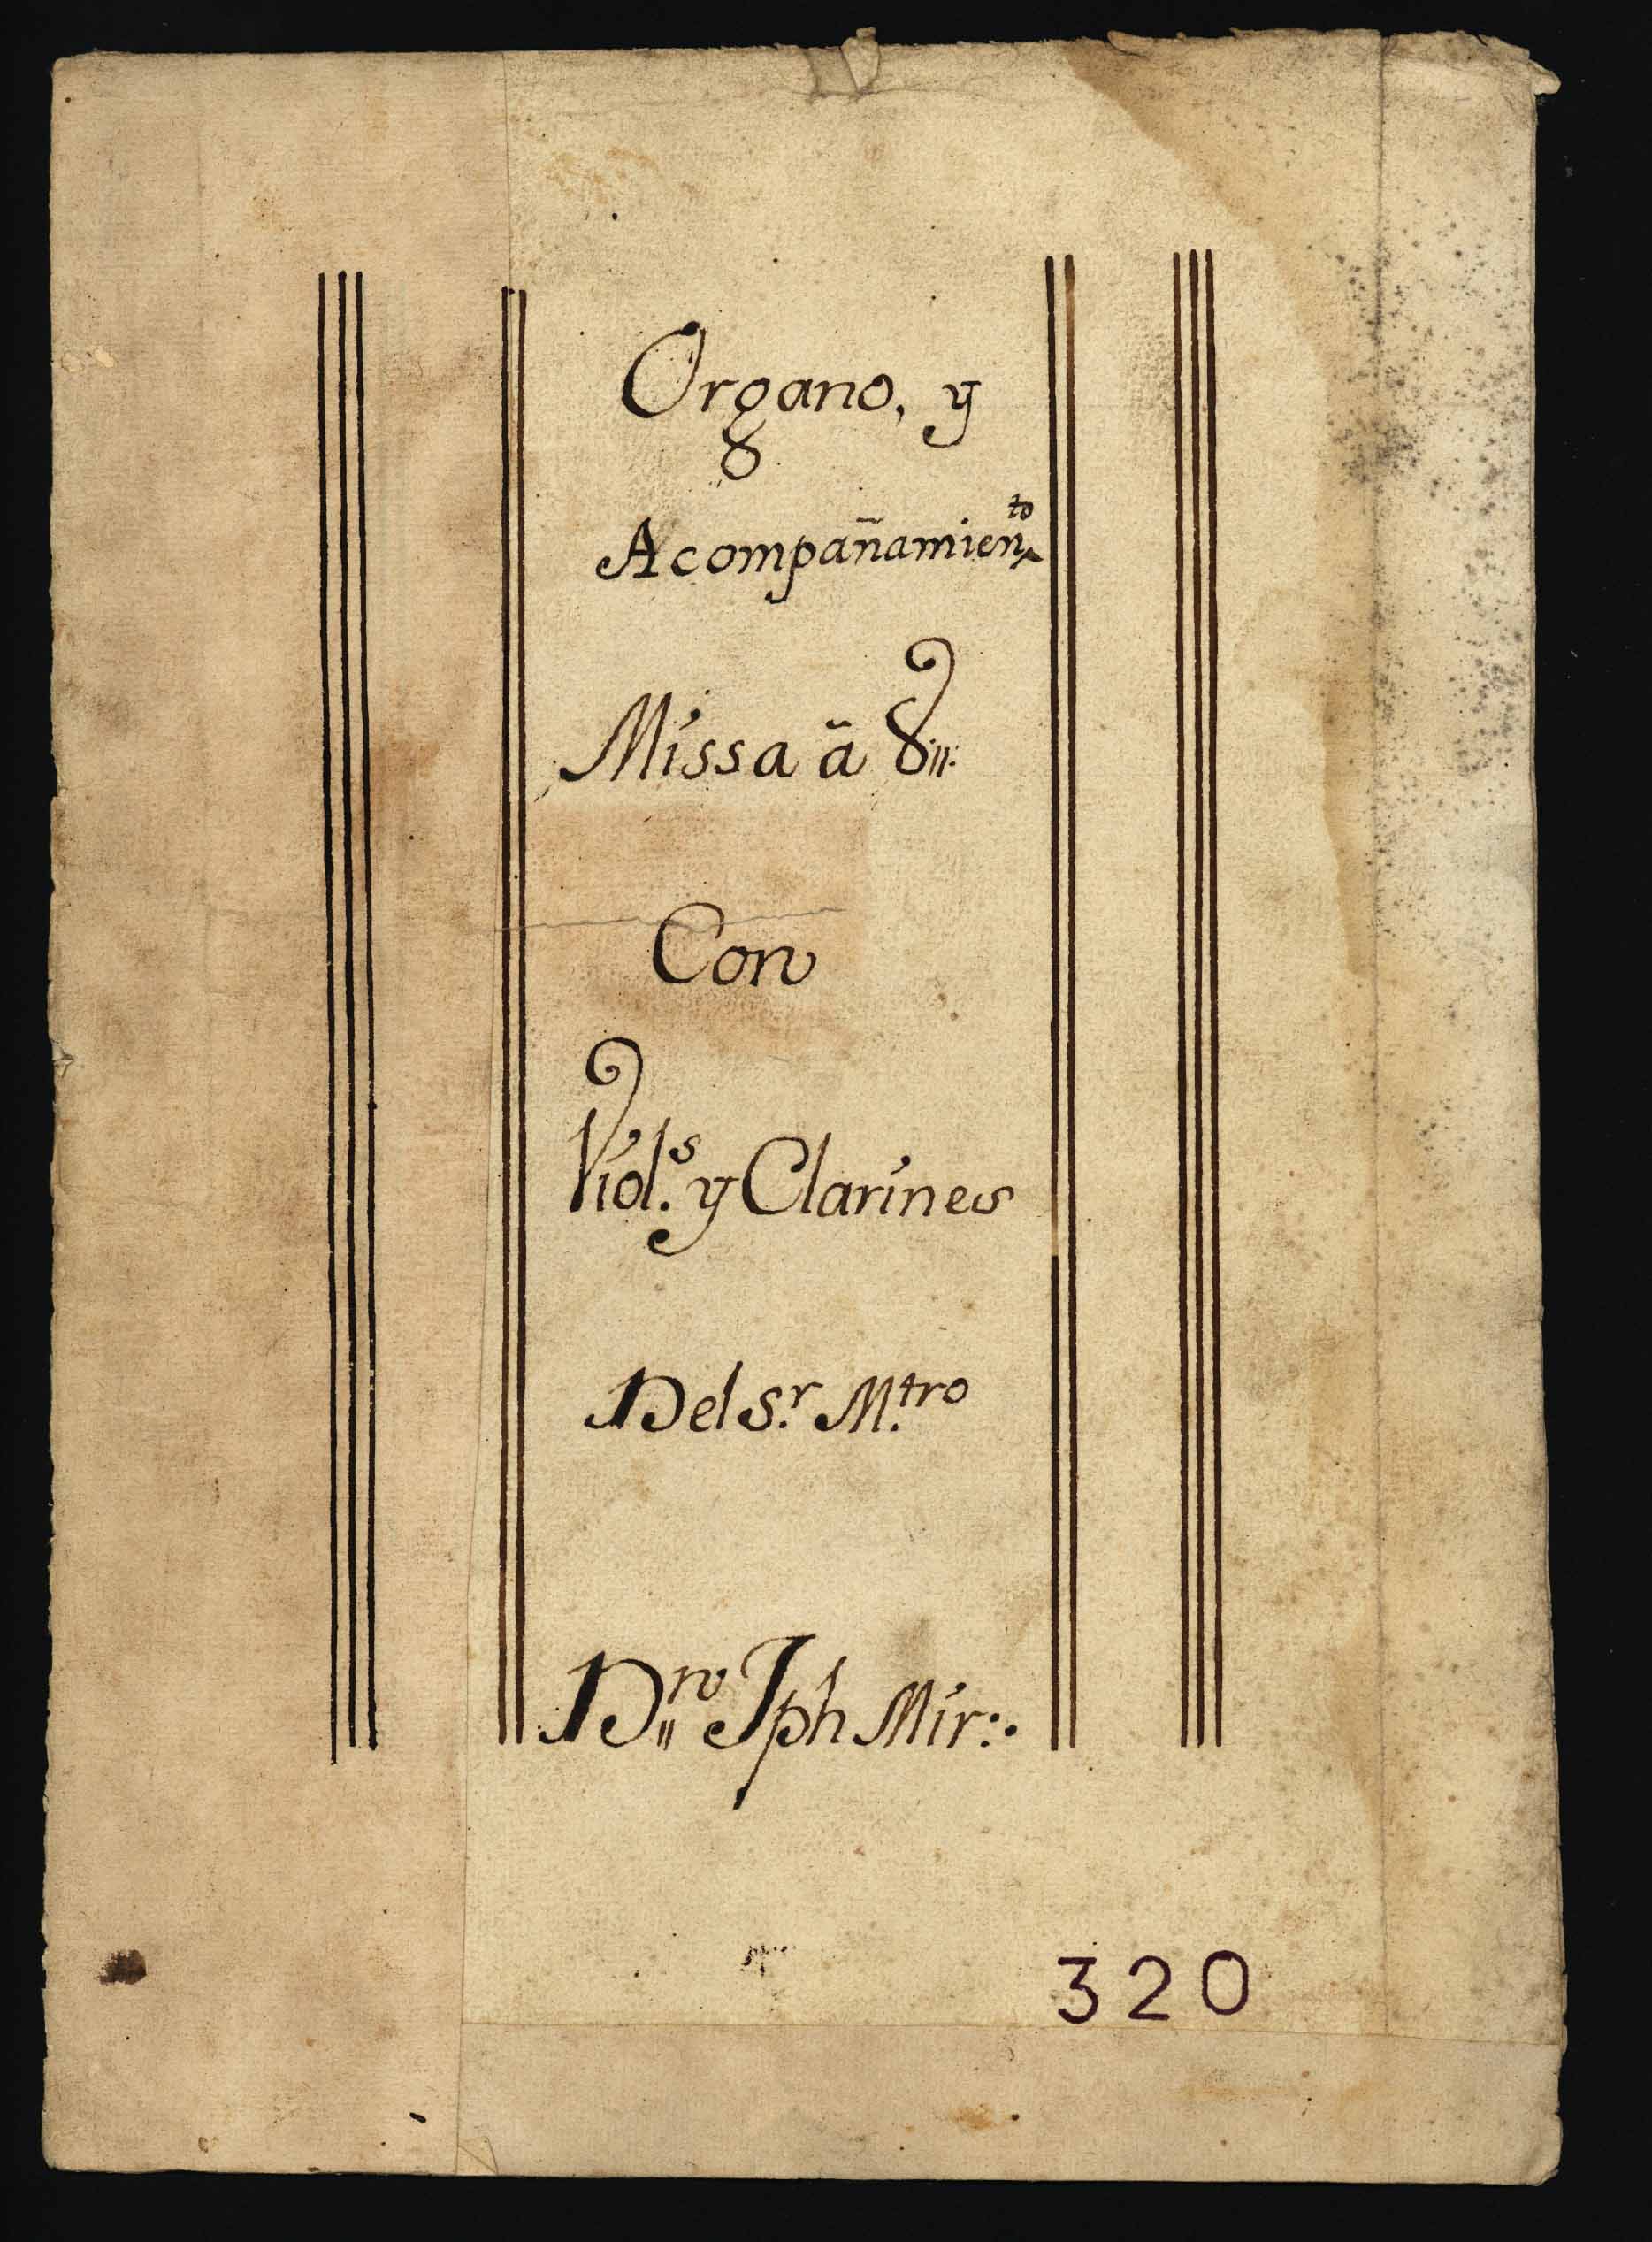 Organo, y
Acompañamien.to
Missa â 8
Con
Viol.s y Clarines
Del S.r M.tro
D.n Jph Mir:.
320